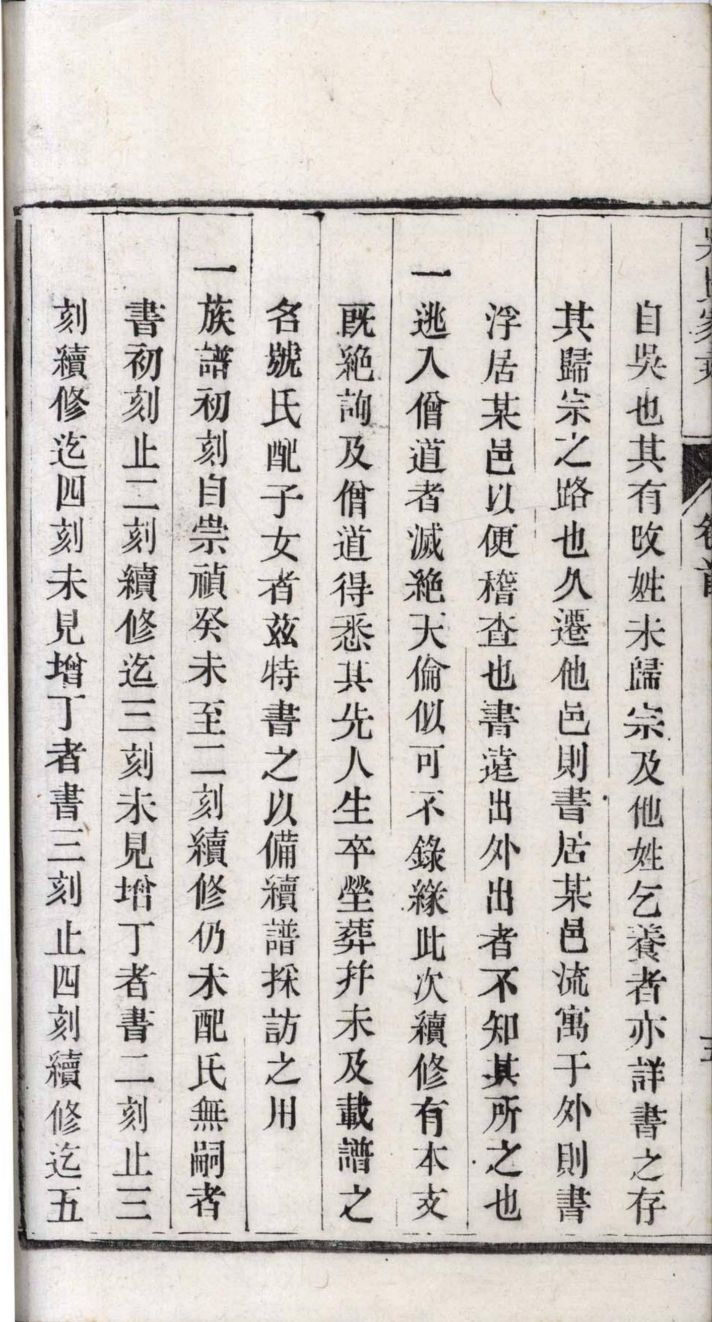 自吳也其有攺姓未歸宗及他姓乞養者亦詳書之存
其歸宗之路也久遷他邑則書居某邑流寓于外則書
浮居某邑以便稽查也書遠出外出者不知其所之也
一逃入僧道者滅絶天倫似可不錄緣此次續修有本支
既絶詢及僧道得悉其先人生卒塋葬幷未及載譜之
名號氏配子女者茲特書之以備續譜採訪之用
一族譜初刻自崇禎癸未至二刻續修仍未配氏無嗣者
書初刻止二刻續修迄三刻未見增丁者書二刻止三
刻續修迄四刻未見增丁者書三刻止四刻續修迄五